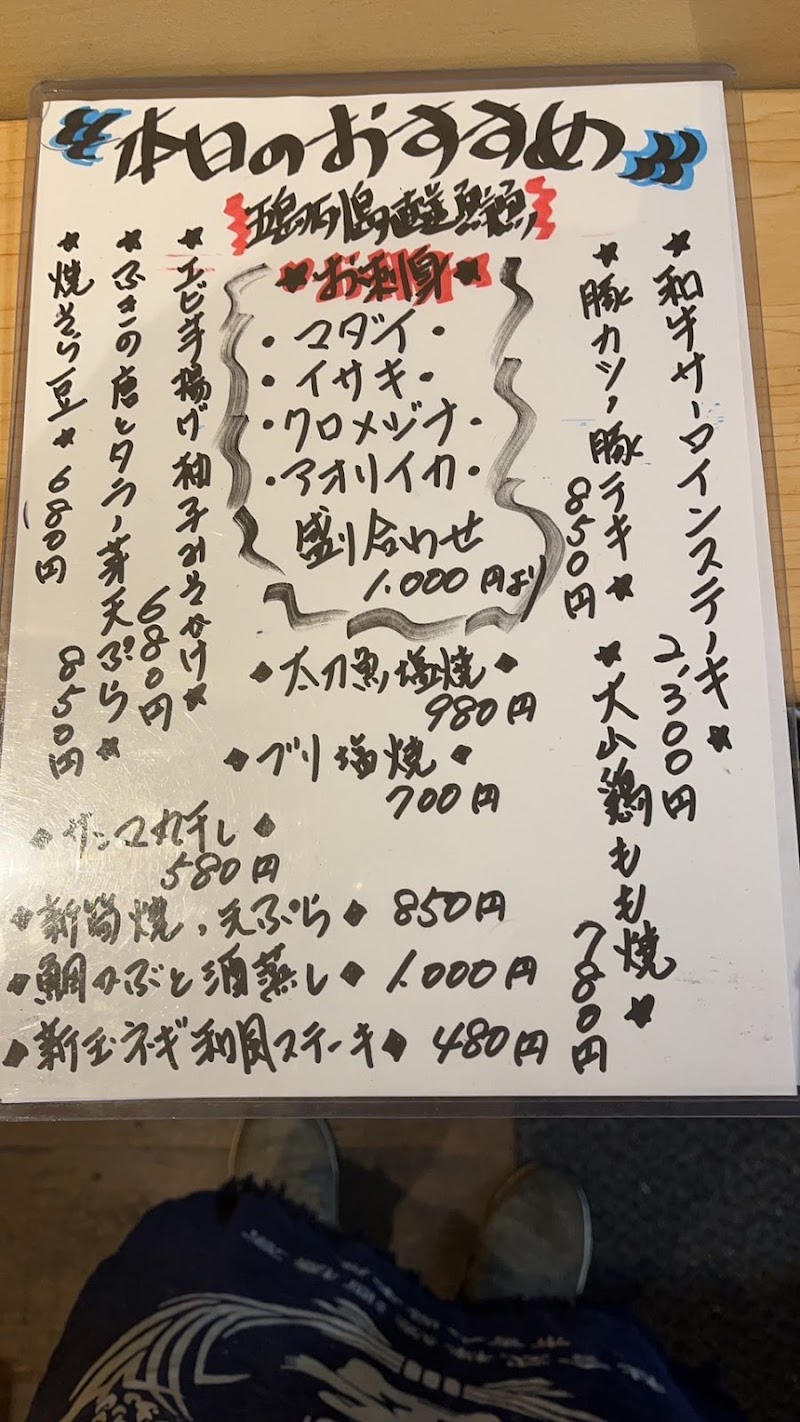 本日のおすすめ
五島列島直送鮮魚
お刺身
・マダイ・
・イサキ・
・クロメジナ・
・アオリイカ・
盛り合わせ
1.000円より
★和牛サーロインステーキ★
2,300円
★豚カツ、豚テキ★
850円
★大山鶏もも焼★
780円
★エビ芋揚げ柚子みそかけ★
680円
★ふきの唐とタラノ芽天ぷら★
850円
★焼そら豆★680円
◆太刀魚塩焼◆
980円
◆ブリ塩焼◆
700円
◆サンマ丸干し◆
580円
◆新筍焼、天ぷら◆ 850円
◆鯛かぶと酒蒸し◆ 1.000円
◆新玉ネギ和風ステーキ◆ 480円